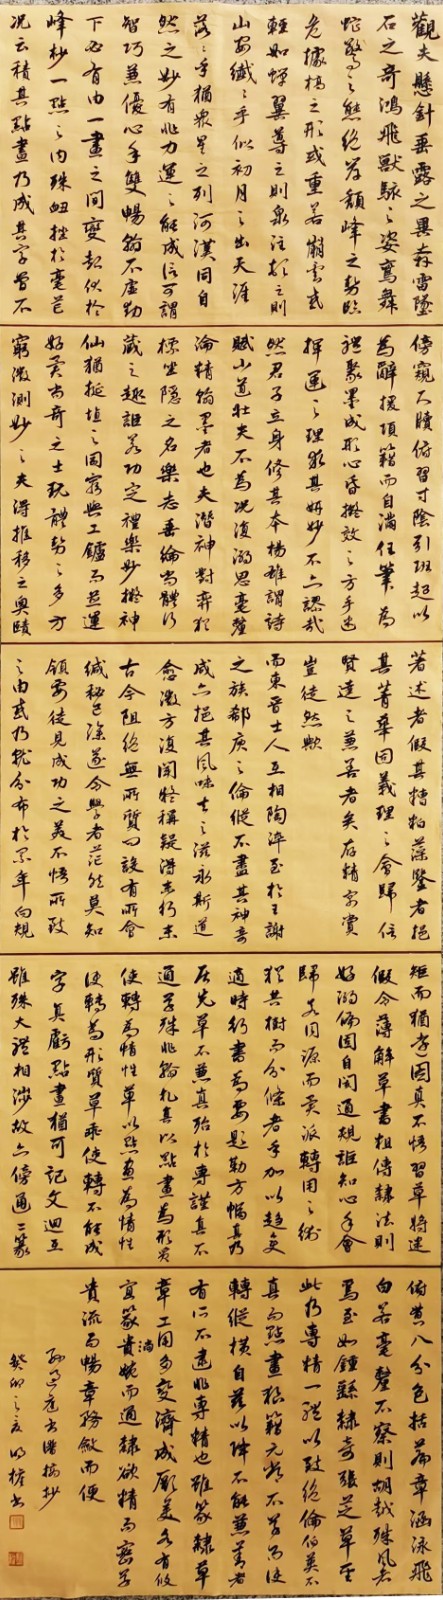 觀夫懸針垂露之異奔雷墜
石之奇鴻飛獸駭之姿鸞舞
蛇驚之態絕岸頹峰之勢臨
危據槁之形或重若崩雲或
輕如蟬翼導之則泉注頓之則
山安纖纖乎似初月之出天涯
落落乎猶眾星之列河漢同自
然之妙有非力運之能成信可謂
智巧兼優心手雙暢翰不虛動
下必有由一畫之間變起伏於
峰杪一點之內殊衄挫於毫芒
況云積其點畫乃成其字曾不
傍窺尺牘俯習寸陰引班超以
為辭援項籍而自滿任筆為
體聚墨成形心昏擬效之方手迷
揮運之理求其妍妙不亦謬哉
然君子立身務其本揚雄謂詩
賦小道壯夫不為況復溺思毫釐
淪精翰墨者也夫潛神對弈猶
標坐隱之名樂志垂綸尚體行
藏之趣詎若功定禮樂妙擬神
仙猶埏埴之罔窮與工鑪而並運
好異尚奇之士玩體勢之多方
窮微測妙之夫得推移之奧賾
著述者假其糟粕藻鑒者挹
其菁華固義理之會歸信
賢達之兼善者矣存精寓賞
豈徒然歟
而東晉士人互相陶淬至於王謝
之族郗庾之倫縱不盡其神奇
咸亦挹其風味去之滋永斯道
愈微方復聞疑稱疑得末行末
古今阻絕無所質問設有所會
緘秘已深遂令學者茫然莫知
領要徒見成功之美不悟所致
之由或乃就分布於累年向規
矩而猶遠圖真不悟習草將迷
假令薄解草書粗傳隸法則
好溺偏固自閡通規詎知心手會
歸若同源而異派轉用之術
猶共樹而分條者乎加以趨變
適時行書為要題勒方幅真乃
居先草不兼真殆於專謹真不
通草殊非翰札真以點畫為形質
使轉為情性草以點畫為情性
使轉為形質草乖使轉不能成
字真虧點畫猶可記文迴互
雖殊大體相涉故亦傍通二篆
俯貫八分包括篇章涵泳飛
白若毫釐不察則胡越殊風者
焉至如鍾繇隸奇張芝草聖
此乃專精一體以致絕倫伯英不
真而點畫狼籍元常不草而使
轉縱橫自茲以降不能兼善者
有所不逮非專精也雖篆隸草
章工用多變濟成厥美各有攸
宜篆貴婉而通隸欲精而密草
貴流而暢章務檢而便
孫過庭書譜摘抄
癸卯之夏明書